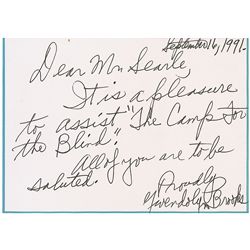 September 16, 1991.
Dear Mr. Searle,
It is a pleasure
to assist "The Camp For
the Blind."
All of you are to be
saluted.
Proudly
Gwendolyn Brooks